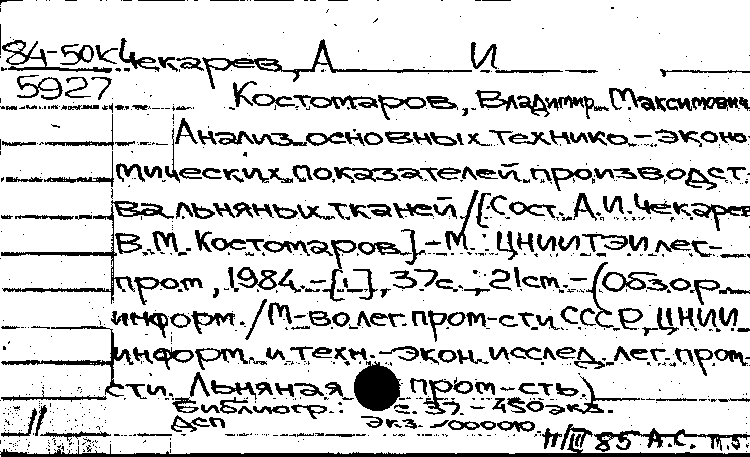 84-50К Чекарев, А И
5927
Костомаров, Владимир Максимович
Анализ основных технико-эконо
мических показателей производст
ва льняных тканей /[Сост. А.И. Чекарев
В.М. Костомаров].-М.: ЦНИИТЭИлег-
пром, 1984.-[1], 37с.; 21см.-(Обзор.
информ./М-во лег. пром-сти СССР, ЦНИИ
информ. и техн.-экон. исслед. лег. пром-
сти. Льняная пром-сть.)
Библиогр.: с. 37.-450экз.
ДСП экз.
11 11/III 85 А.С.